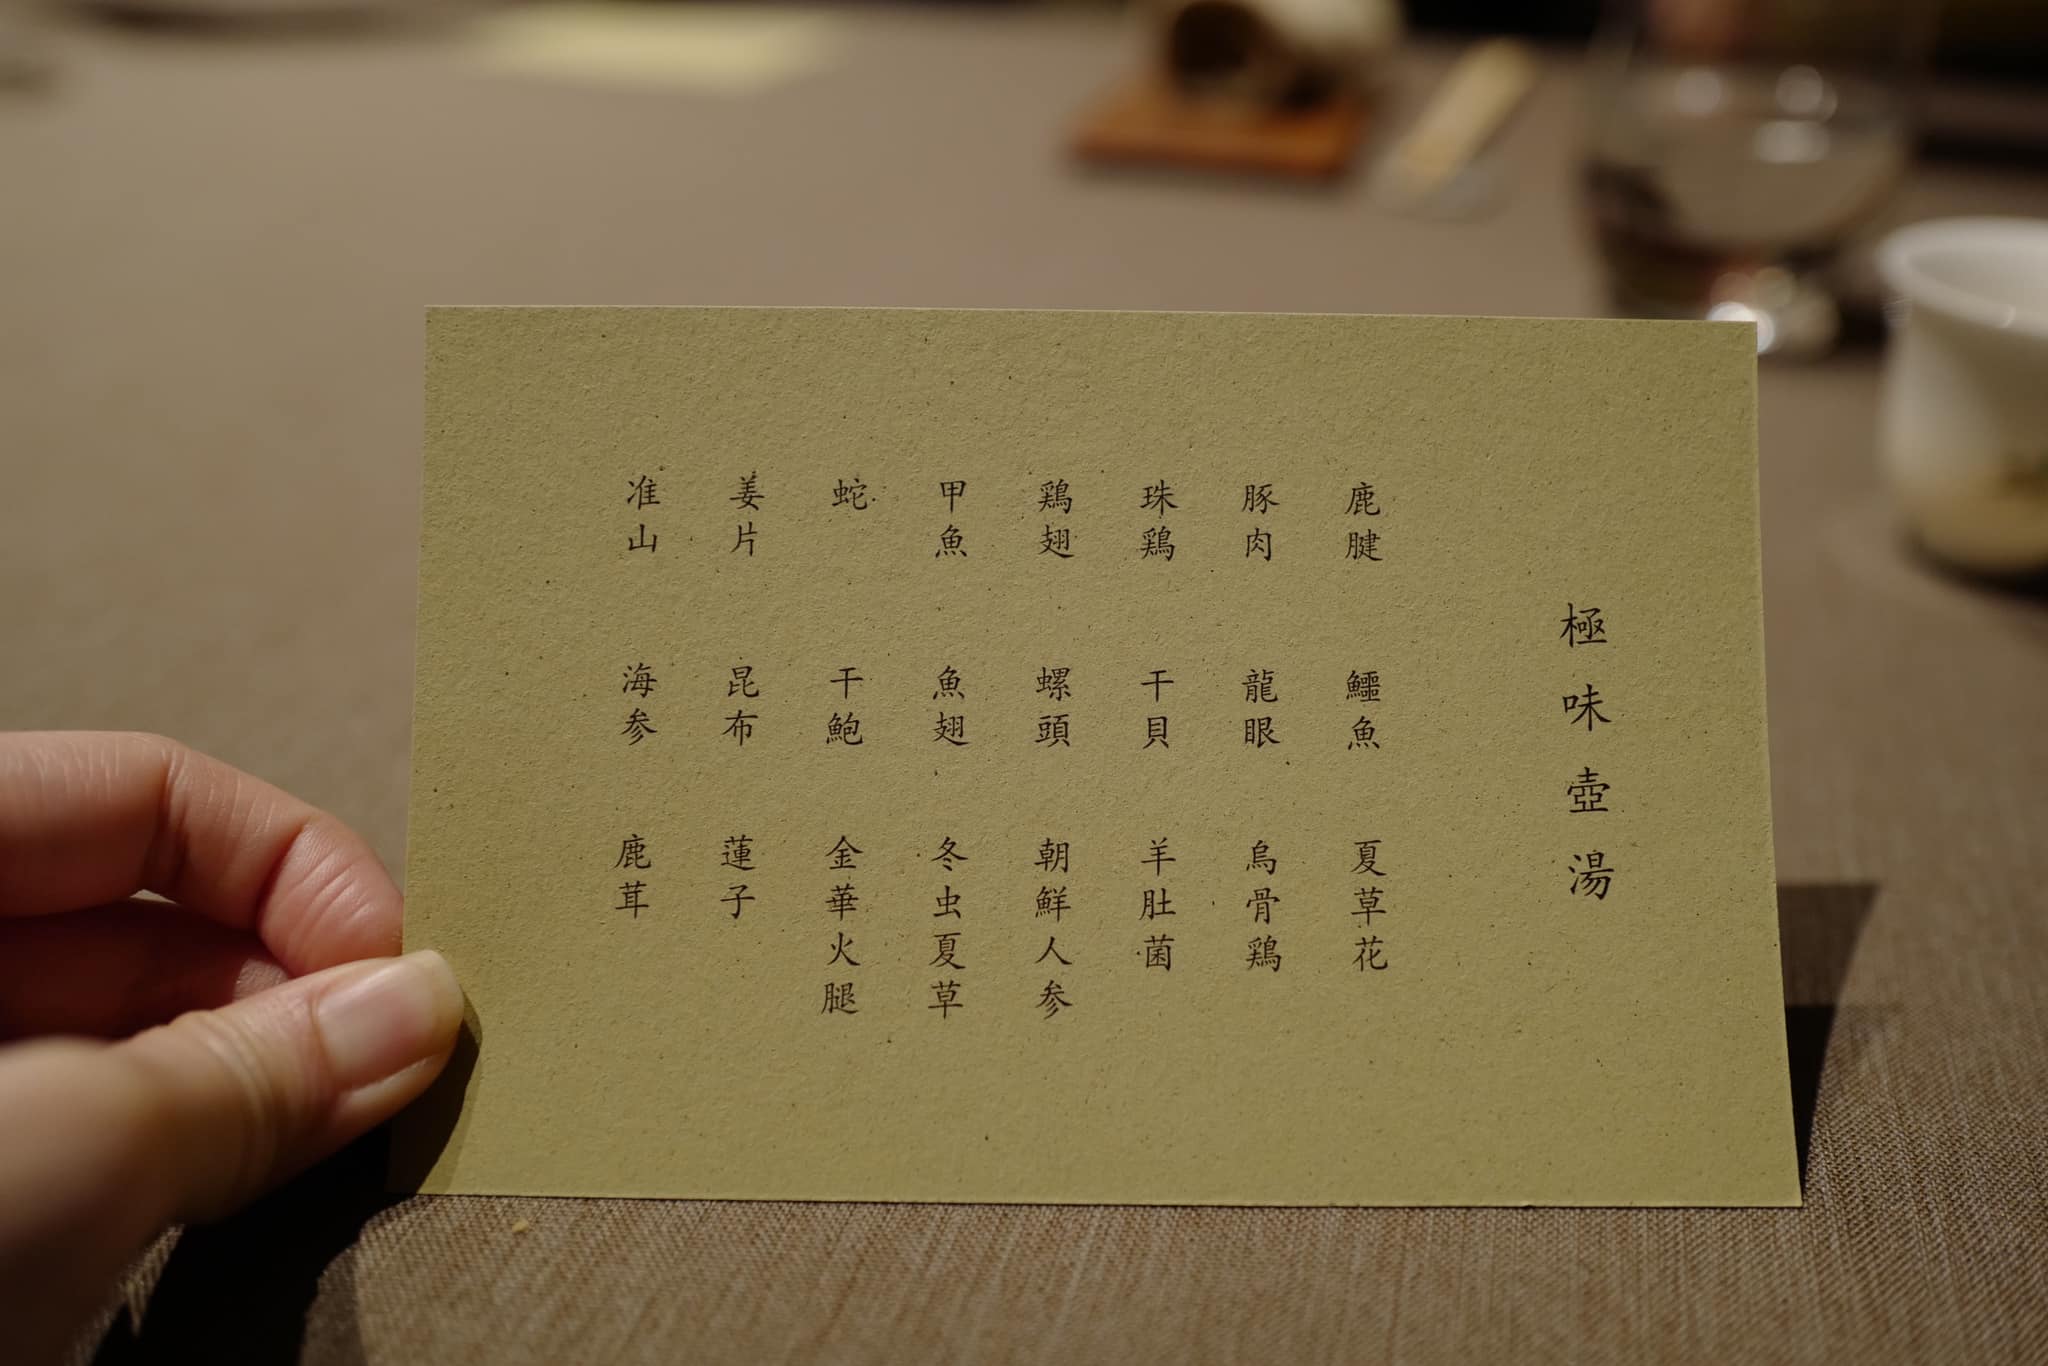 極味壺湯
鹿腱
豚肉
珠鶏
鶏翅
甲魚
蛇
姜片
准山
鱷魚
龍眼
干貝
螺頭
魚翅
干鮑
昆布
海参
夏草花
烏骨鶏
羊肚菌
朝鮮人参
冬虫夏草
金華火腿
蓮子
鹿茸